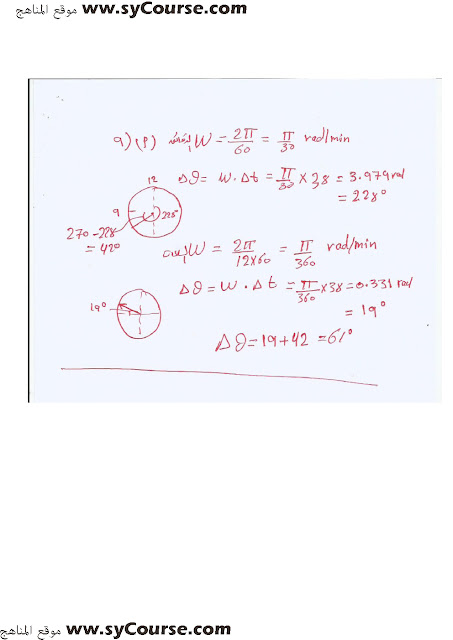 موقع المناهج www.syCourse.com
9) (P) W = 2π/60 = π/30 rad/min
12
Δθ = W.Δt = π/30 × 38 = 3.979 rad
= 228°
9
228°
270 - 228
= 42°
W = 2π/12×60 = π/360 rad/min
Δθ = W . Δt = π/360 ×38 = 0.331 rad
= 19°
19°
Δθ = 19 + 42 = 61°
موقع المناهج www.syCourse.com